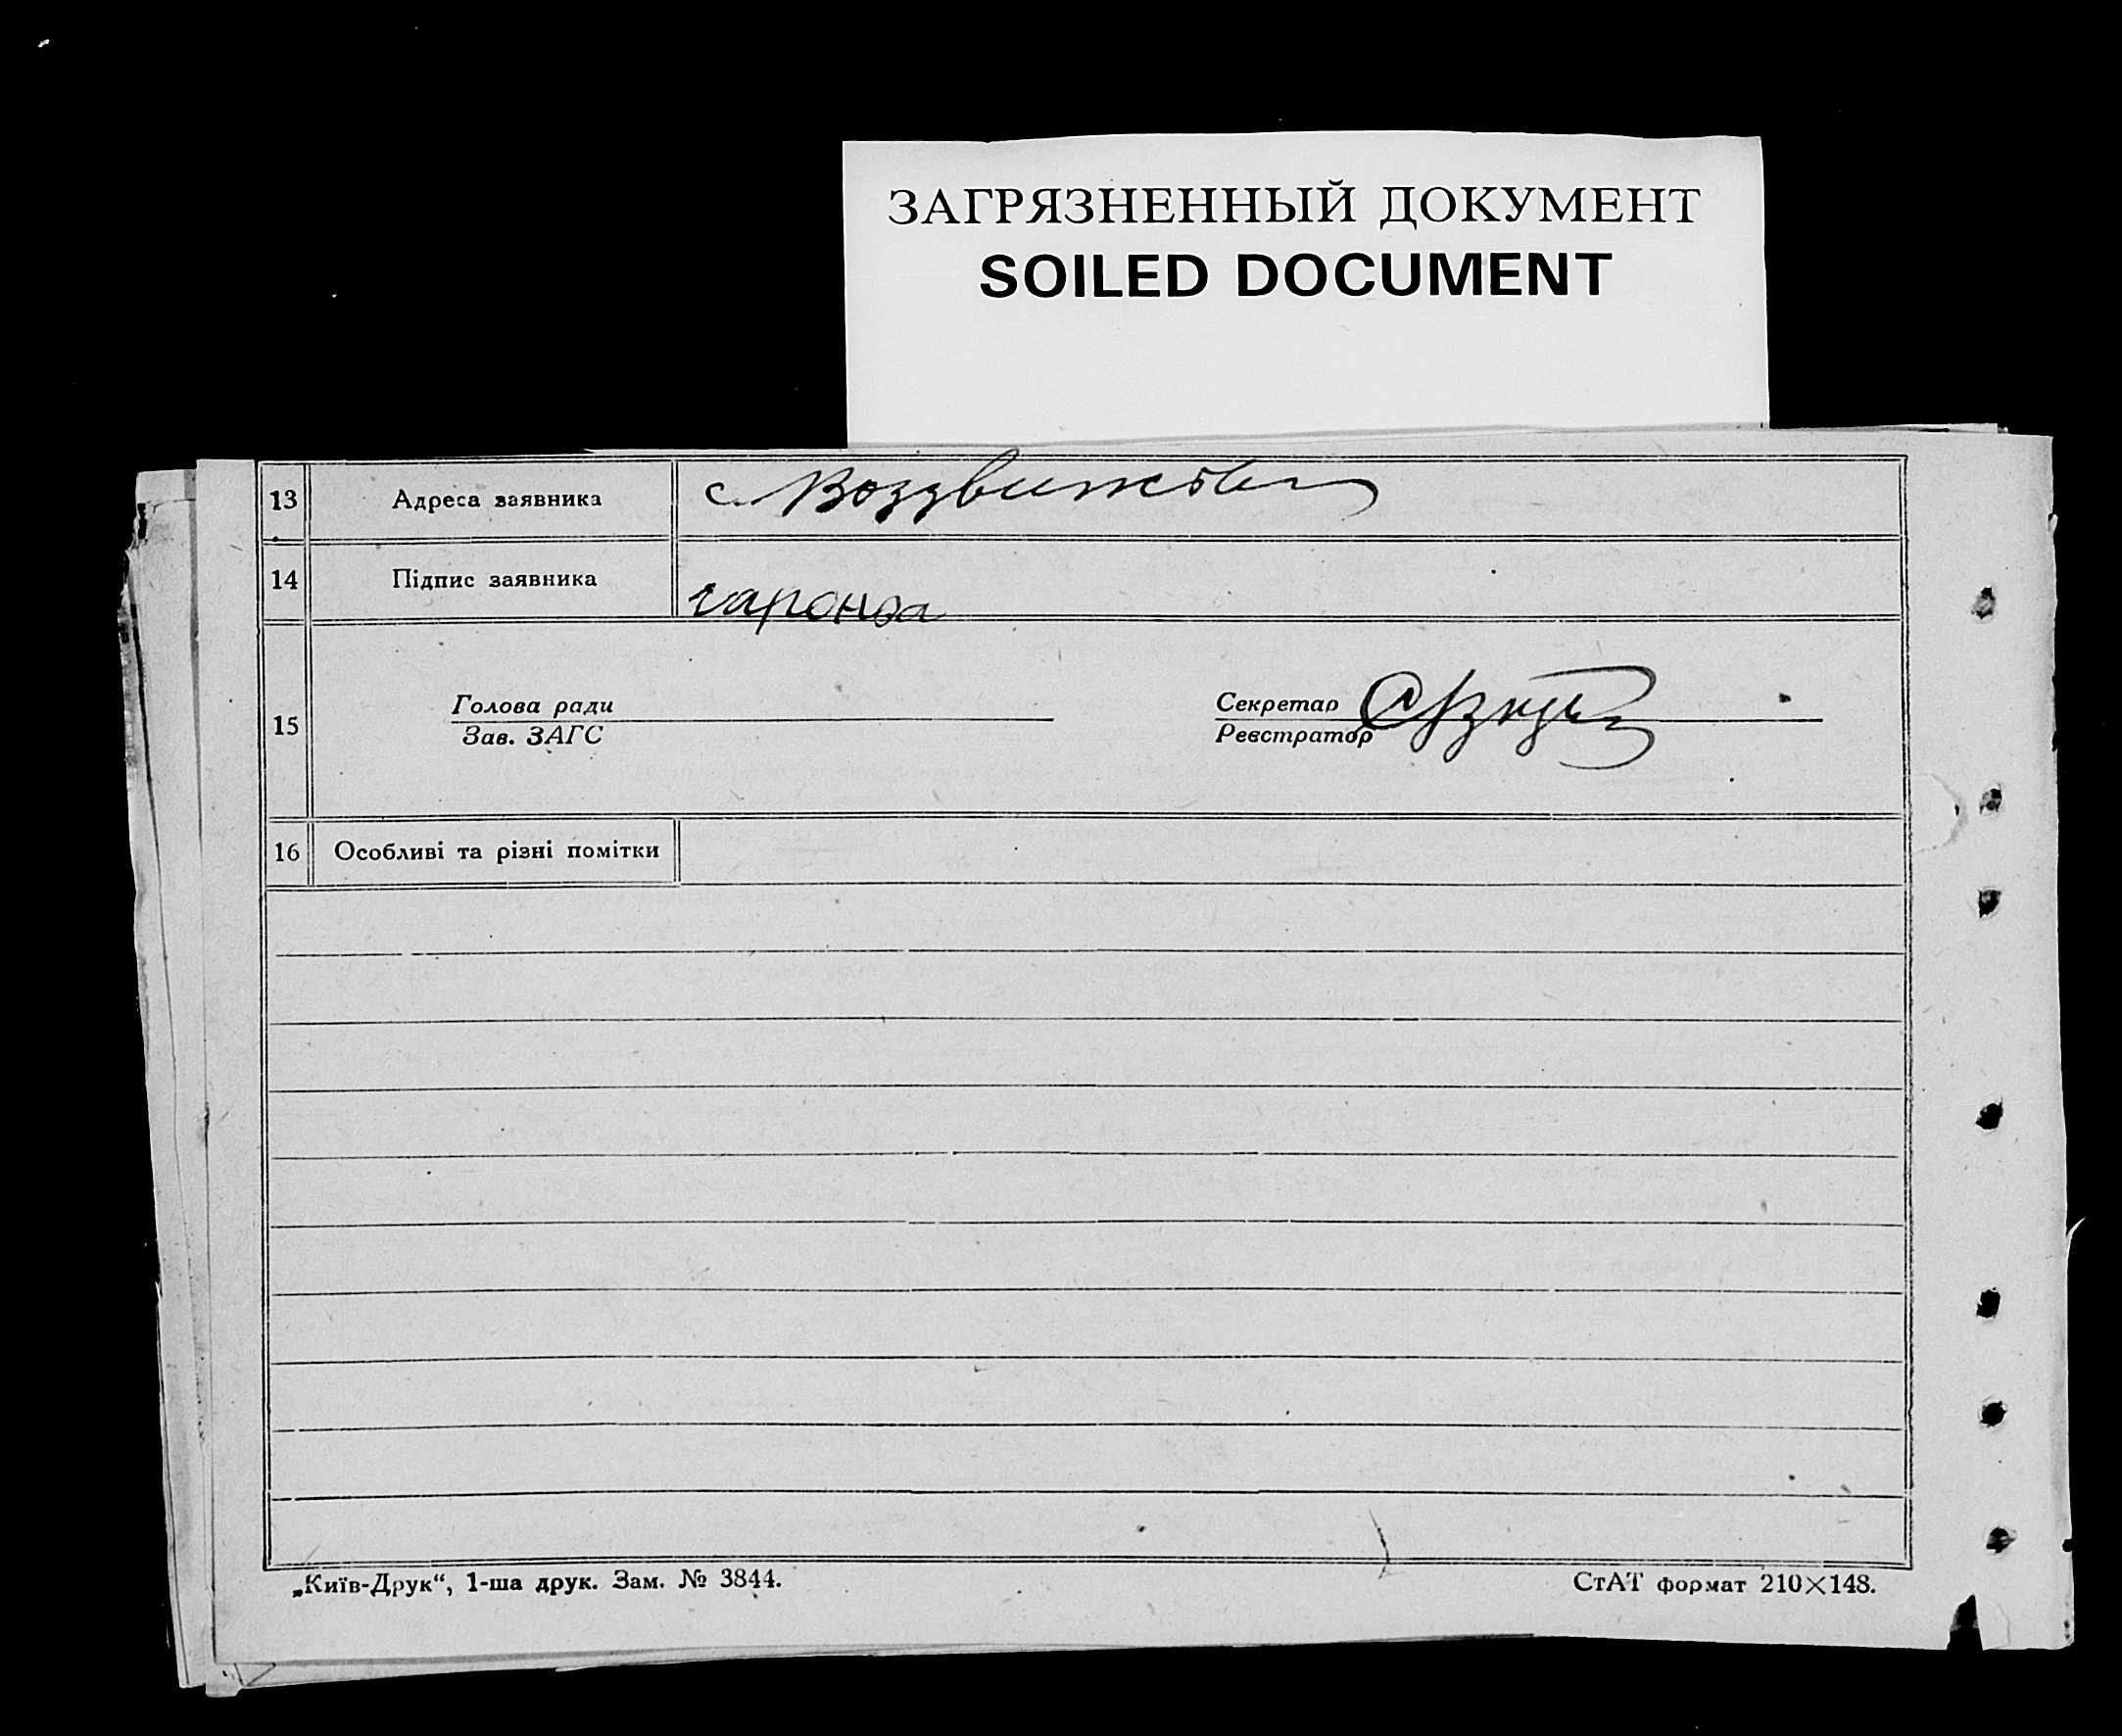 ЗАГРЯЗНЕННЫЙ ДОКУМЕНТ
SOILED DOCUMENT
13 Адреса заявника с. Воздвижівка
14 Підпис заявника
15
Голова ради
Зав. ЗАГС
Секретар
Реєстратор
16 Особливі та різні помітки
„Київ-Друк“, 1-ша друк. Зам. № 3844.
СтАТ формат 210×148.